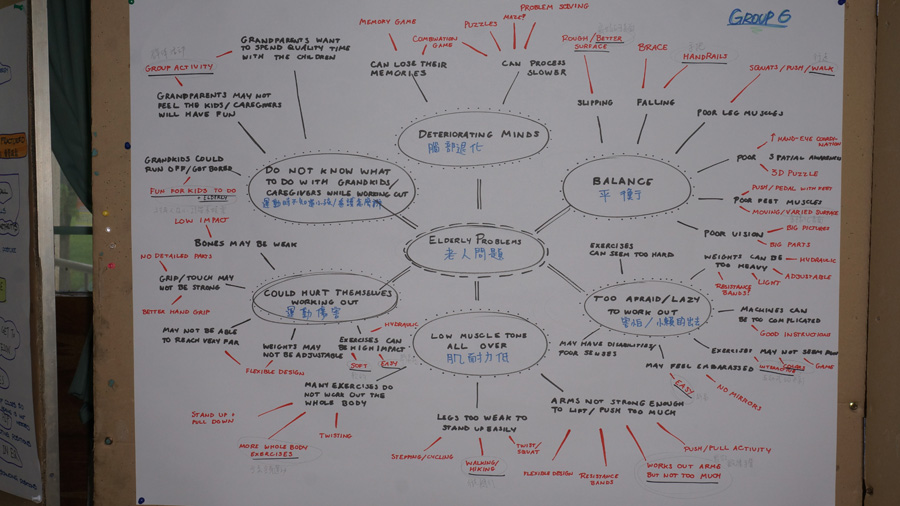 GROUP 6
PROBLEM SOLVING
MEMORY GAME
MAZE?
PUZZLES
COMBINATION
GAME
ROUGH/BETTER
SURFACE
BRACE
HANDRAILS
SQUATS/PUSH/WALK
GRANDPARENTS WANT
TO SPEND QUALITY TIME
WITH THE CHILDREN
GROUP ACTIVITY
CAN LOSE THEIR
MEMORIES
CAN PROCESS
SLOWER
SLIPPING
FALLING
POOR LEG MUSCLES
GRANDPARENTS MAY NOT
FEEL THE KIDS/CAREGIVERS
WILL HAVE FUN
DETERIORATING MINDS
腦部退化
↑ HAND-EYE COORDI-
NATION
POOR SPATIAL AWARENESS
3D PUZZLE
GRANDKIDS COULD
RUN OFF/GOT BORED
FUN FOR KIDS TO DO
+ ELDERLY
DO NOT KNOW WHAT
TO DO WITH GRANDKIDS/
CAREGIVERS WHILE WORKING OUT
BALANCE
平
PUSH/PEDAL WITH FEET
POOR FEET MUSCLES
MOVING/VARIED SURFACE
LOW IMPACT
BONES MAY BE WEAK
ELDERLY PROBLEMS
老人問題
POOR VISION
BIG PICTURES
BIG PARTS
EXERCISES
CAN SEEM TOO HARD
NO DETAILED PARTS
GRIP/TOUCH MAY
NOT BE STRONG
BETTER HAND GRIP
COULD HURT THEMSELVES
WORKING OUT
運動傷害
WEIGHTS CAN BE
TOO HEAVY
HYDRAULIC
ADJUSTABLE
LIGHT
RESISTANCE
BANDS!
TOO AFRAID/LAZY
TO WORK OUT
MACHINES CAN
BE TOO COMPLICATED
GOOD INSTRUCTIONS
MAY NOT BE ABLE
TO REACH VERY FAR
FLEXIBLE DESIGN
WEIGHTS MAY
NOT BE ADJUSTABLE
HYDRAULIC
EXERCISES CAN
BE HIGH IMPACT
SOFT
EASY
LOW MUSCLE TONE
ALL OVER
肌耐力低
MAY HAVE DISABILITIES/
POOR SENSES
EXERCISES MAY NOT SEEM FUN
INTERACTIVE
GAME
MAY FEEL EMBARASSED
EASY
NO MIRRORS
MANY EXERCISES DO
NOT WORK OUT THE
WHOLE BODY
STAND UP +
PULL DOWN
MORE WHOLE BODY
EXERCISES
TWISTING
LEGS TOO WEAK TO
STAND UP EASILY
STEPPING/CYCLING
WALKING/
HIKING
TWIST/
SQUAT
ARMS NOT STRONG ENOUGH
TO LIFT/PUSH TOO MUCH
FLEXIBLE DESIGN
RESISTANCE
BANDS
WORKS OUT ARMS
BUT NOT TOO MUCH
PUSH/PULL ACTIVITY